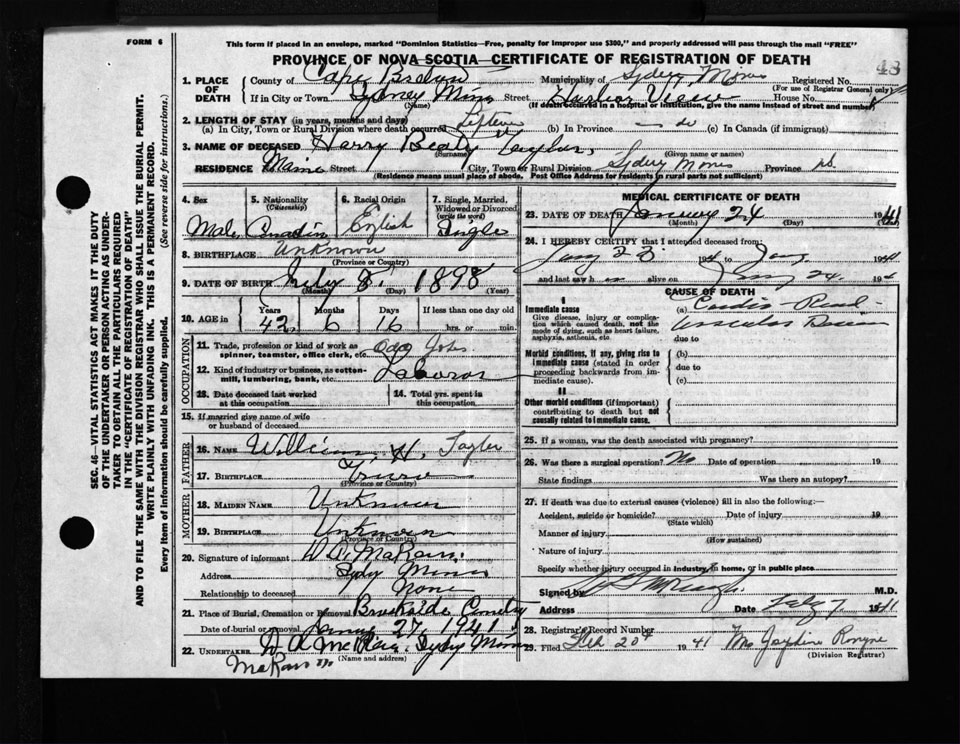 FORM 6
This form if placed in an envelope, marked "Dominion Statistics—Free, penalty for improper use $300," and properly addressed will pass through the mail "FREE"
PROVINCE OF NOVA SCOTIA—CERTIFICATE OF REGISTRATION OF DEATH
SEC. 46—VITAL STATISTICS ACT MAKES IT THE DUTY
OF THE UNDERTAKER OR PERSON ACTING AS UNDER-
TAKER TO OBTAIN ALL THE PARTICULARS REQUIRED
IN THE "CERTIFICATE OF REGISTRATION OF DEATH"
AND TO FILE THE SAME WITH THE DIVISION REGISTRAR WHO SHALL ISSUE THE BURIAL PERMIT.
WRITE PLAINLY WITH UNFADING INK. THIS IS A PERMANENT RECORD.
Every item of information should be carefully supplied. (See reverse side for instructions.)
1. PLACE OF DEATH
County of Cape Breton Municipality of Sydney Mines Registered No. 43
(For use of Registrar General only)
If in City or Town Sydney Mines Street Harbor View House No. 8
(Name) (If death occurred in a hospital or institution, give the name instead of street and number)
2. LENGTH OF STAY (in years, months and days)
(a) In City, Town or Rural Division where death occurred Lifetime (b) In Province do (c) In Canada (if immigrant)
3. NAME OF DECEASED Harry Taylor
(Surname) (Given name or names)
RESIDENCE No. Main Street City, Town or Rural Division Sydney Mines Province N.S.
(Residence means usual place of abode. Post Office Address for residents in rural parts not sufficient)
4. Sex Male
5. Nationality (Citizenship) Canadian
6. Racial Origin English
7. Single, Married, Widowed or Divorced (write the word) Single
8. BIRTHPLACE Unknown
(Province or Country)
9. DATE OF BIRTH July 8 1898
(Month) (Day) (Year)
10. AGE in Years 42 Months 6 Days 16 If less than one day old hrs. or min.
OCCUPATION
11. Trade, profession or kind of work as spinner, teamster, office clerk, etc. Odd Jobs
12. Kind of industry or business, as cotton-mill, lumbering, bank, etc. Laborer
28. Date deceased last worked at this occupation
14. Total yrs. spent in this occupation
15. If married give name of wife or husband of deceased
FATHER
16. NAME William H. Taylor
17. BIRTHPLACE Truro
(Province or Country)
MOTHER
18. MAIDEN NAME Unknown
19. BIRTHPLACE Unknown
(Province or Country)
20. Signature of informant
Address Sydney Mines
Relationship to deceased None
21. Place of Burial, Cremation or Removal Brookside Cemetery
Date of burial or removal January 27, 1941
22. UNDERTAKER Sydney Mines
(Name and address)
MEDICAL CERTIFICATE OF DEATH
23. DATE OF DEATH January 24 1941
(Month) (Day)
24. I HEREBY CERTIFY that I attended deceased from:
Jany 23 1941 to Jany 1941
and last saw h alive on Jany 24 194
CAUSE OF DEATH
I
Immediate cause
Give disease, injury or complication which caused death, not the mode of dying, such as heart failure, asphyxia, asthenia, etc.
(a) Cardio-Renal-
Vascular
due to
Morbid conditions, if any, giving rise to immediate cause (stated in order proceeding backwards from immediate cause).
(b)
due to
(c)
II
Other morbid conditions (if important) contributing to death but not causally related to immediate cause.
25. If a woman, was the death associated with pregnancy?
26. Was there a surgical operation? No Date of operation 19
State findings Was there an autopsy?
27. If death was due to external causes (violence) fill in also the following:—
Accident, suicide or homicide? Date of injury 19
(State which)
Manner of injury
(How sustained)
Nature of injury
Specify whether injury occurred in industry, in home, or in public place
Signed by M.D.
Address Date Feby 7 1941
28. Registrar's Record Number
29. Filed Feb 20th 1941 Mrs
(Division Registrar)